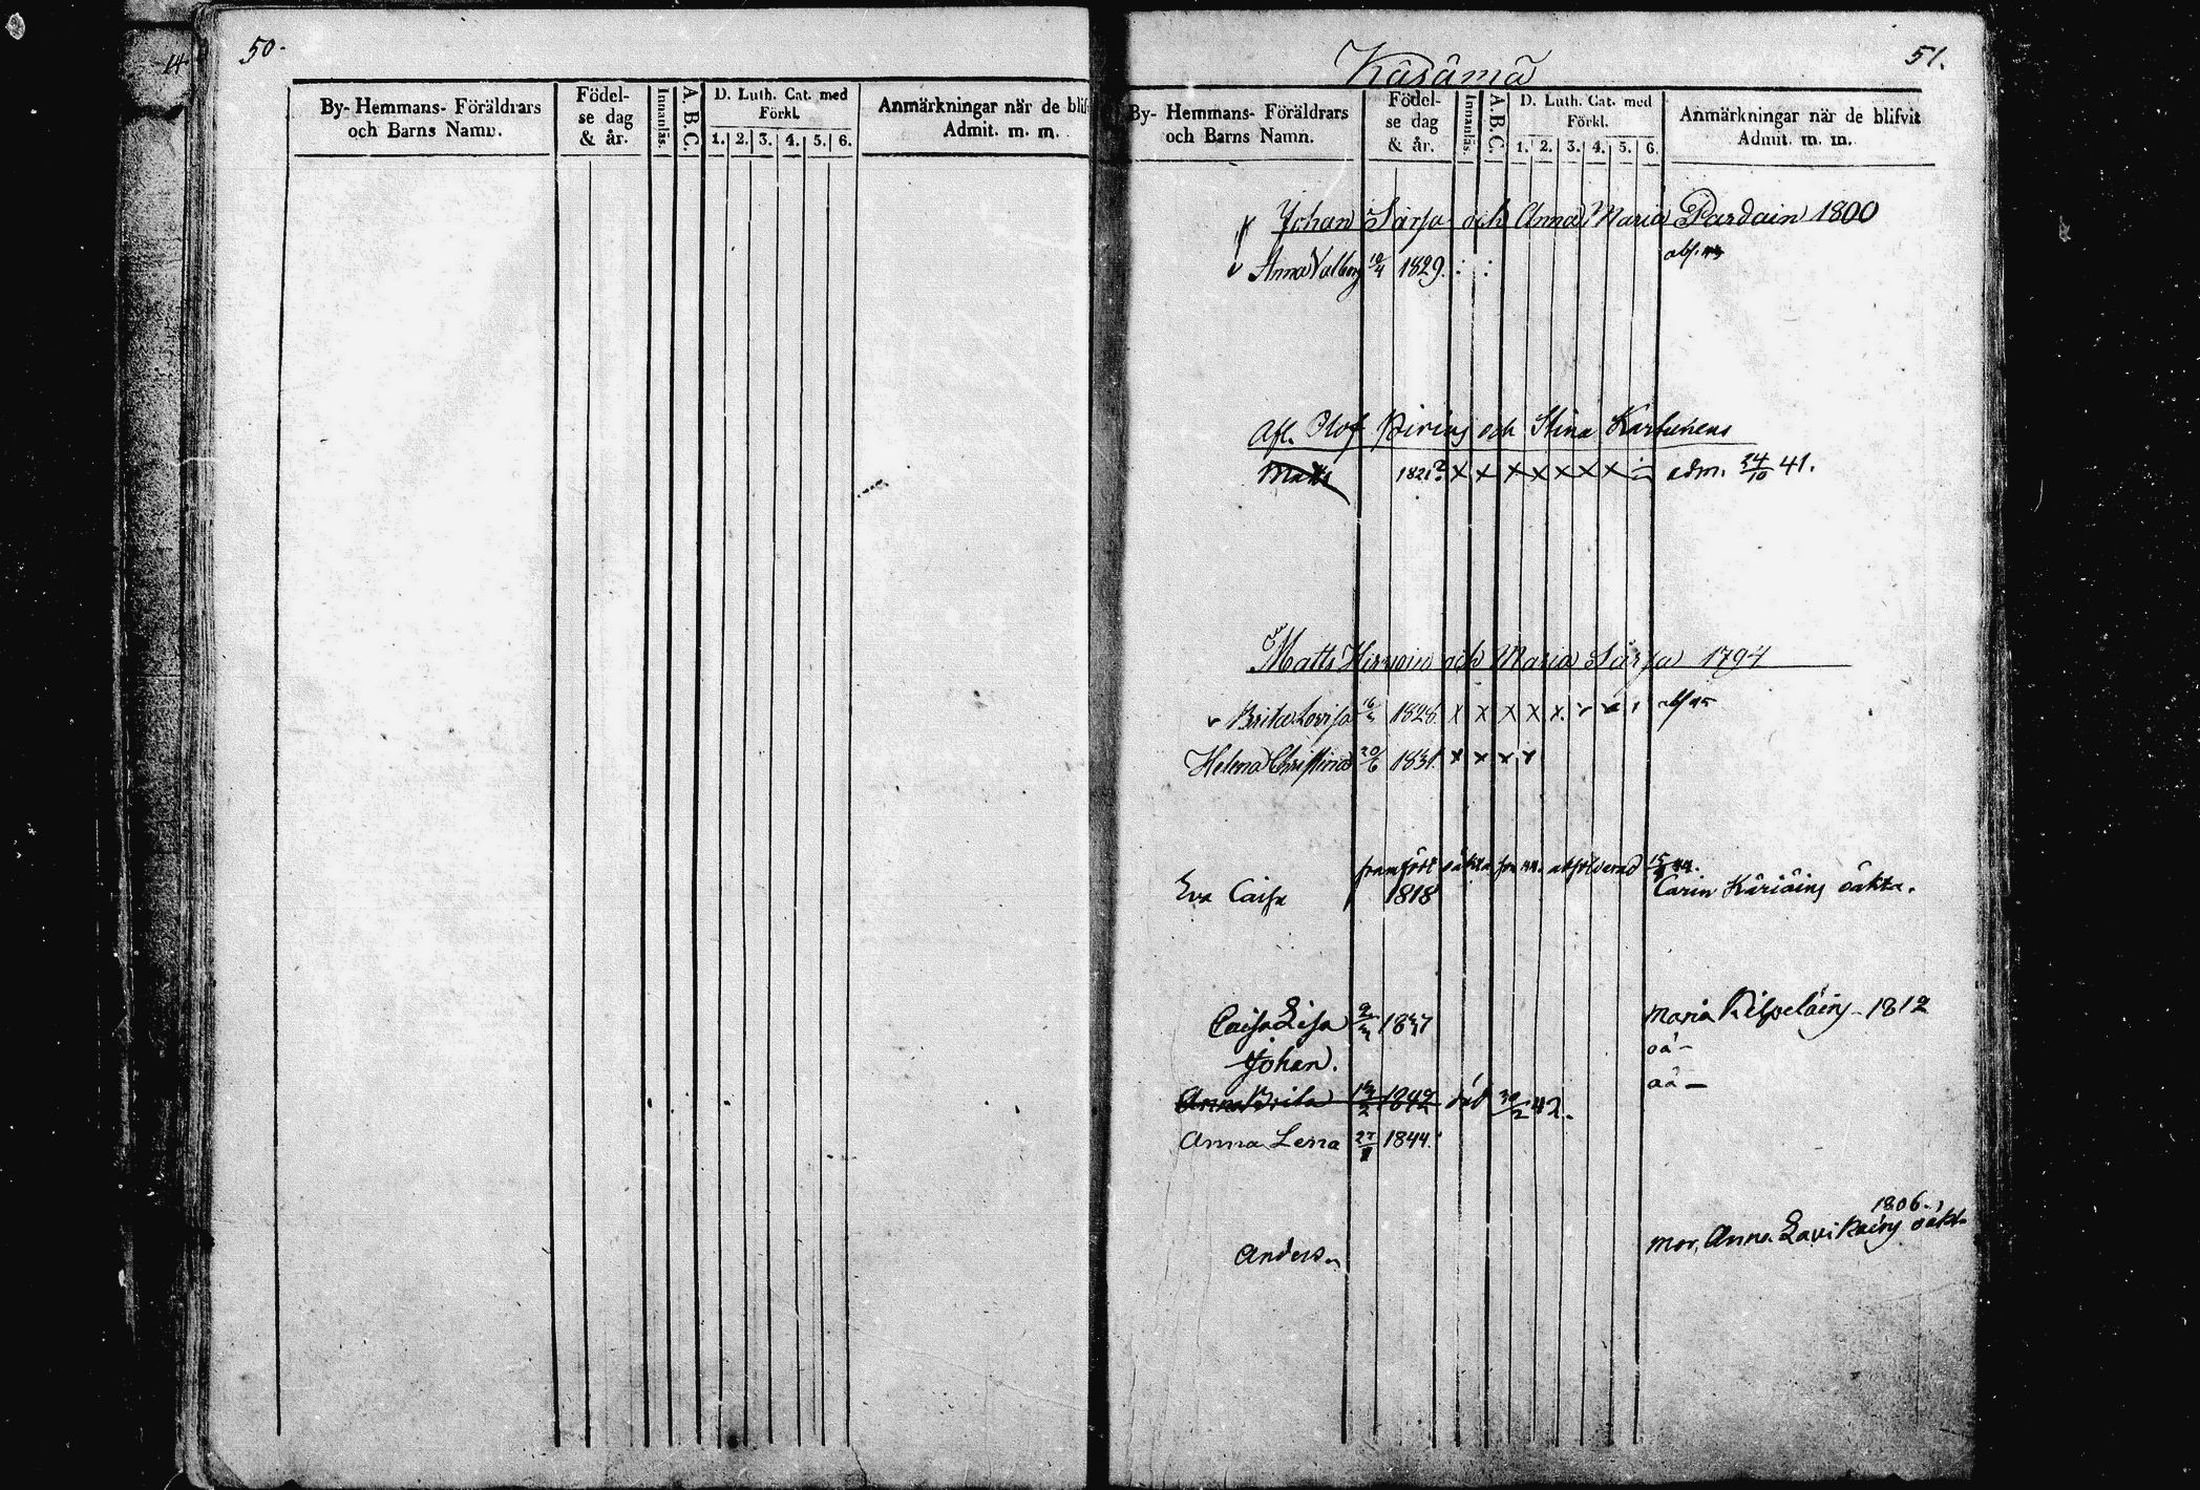 50.
By- Hemmans- Föräldrars och Barns Namn.
Födelse dag & år.
Innanläs.
A. B. C.
D. Luth. Cat. med Förkl.
1. 2. 3. 4. 5. 6.
Anmärkningar när de blif
Admit. m. m.
51.
Käsämä
By- Hemmans- Föräldrars och Barns Namn.
Födelse dag & år.
Innanläs.
A. B. C.
D. Luth. Cat. med Förkl.
1. 2. 3. 4. 5. 6.
Anmärkningar när de blifvit
Admit. m. m.
Johan Särja och Anna Maria Pardain 1800
Anna Valborg 1829.
Afl. Olof och Stina Karhuhens
Matts 1821? x x x x x x x adm. 24/10 41.
Matts Hirvoin och Maria Särja 1794
Brita Lovisa 1828 x x x x x
Helena Christina 20/6 1831 x x x x
framfört oäkta absolverad
Eva Caisa 1818 Carin Käriäins oäkta.
Caisa Lisa 1837 Maria Kilpeläins 1812
Johan. oä-
Anna Brita 1842 död 42.
oä-
Anna Lena 1844.
1806.
Anders. Mor, Anna Lavikains oäkt-